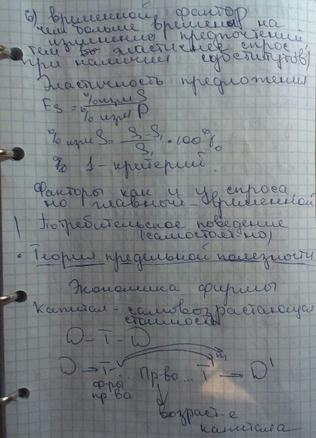 6) временной фактор
чем больше времени на
изменение предпочтений
тем эластичнее спрос
при наличии субститутов)
Эластичность предложения
Es = % изм S / % изм P
% изм S = S₂-S₁ / S₁ · 100%
% 1-критерий.
Факторы как и у спроса
но главный временной
Потребительское поведение
(самостоят-но)
• Теория предельной полезности
Экономика фирмы
Капитал - самовозрастающая
стоимость
D - T - D
D → T ... Пр-во ... T → D'
ф-ры
пр-ва
возраст-е
капитала